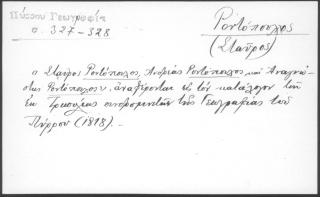 Πύρρου Γεωγραφία
σ. 327-328
Ροντόπουλος
(Σταῦρος)
Ὁ Σταῦρος Ροντόπουλος, Ἀνδρέας Ροντόπουλος καὶ Ἀναγνώ-
στης Ροντόπουλος, ἀναφέρονται εἰς τὸν κατάλογον τῶν
ἐκ Τρικούλας συνδρομητῶν τῆς Γεωγραφίας τοῦ
Πύρρου (1818).